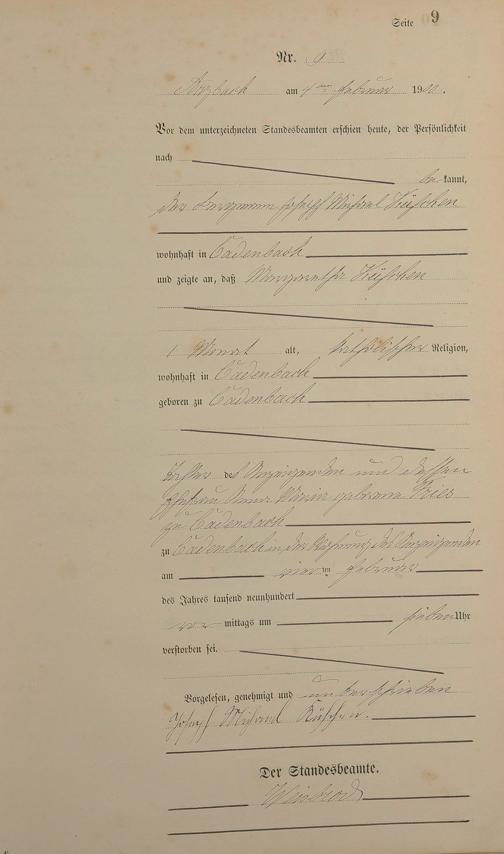 Seite 9
Nr. 9
Arzbach am 4ten Februar 1900.
Vor dem unterzeichneten Standesbeamten erschien heute, der Persönlichkeit
nach
be kannt,
der Bergmann Joseph Michael
wohnhaft in Cadenbach
und zeigte an, daß Margaretha
1 Monat alt, katholischer Religion,
wohnhaft in Cadenbach
geboren zu Cadenbach
Tochter des Anzeigenden und dessen
Ehefrau Anna Maria geborene Fries
zu Cadenbach
zu Cadenbach in der Wohnung des Anzeigenden
am vierten Februar
des Jahres tausend neunhundert
vor mittags um sieben Uhr
verstorben sei.
Vorgelesen, genehmigt und unterschrieben
Joseph Michael
Der Standesbeamte.